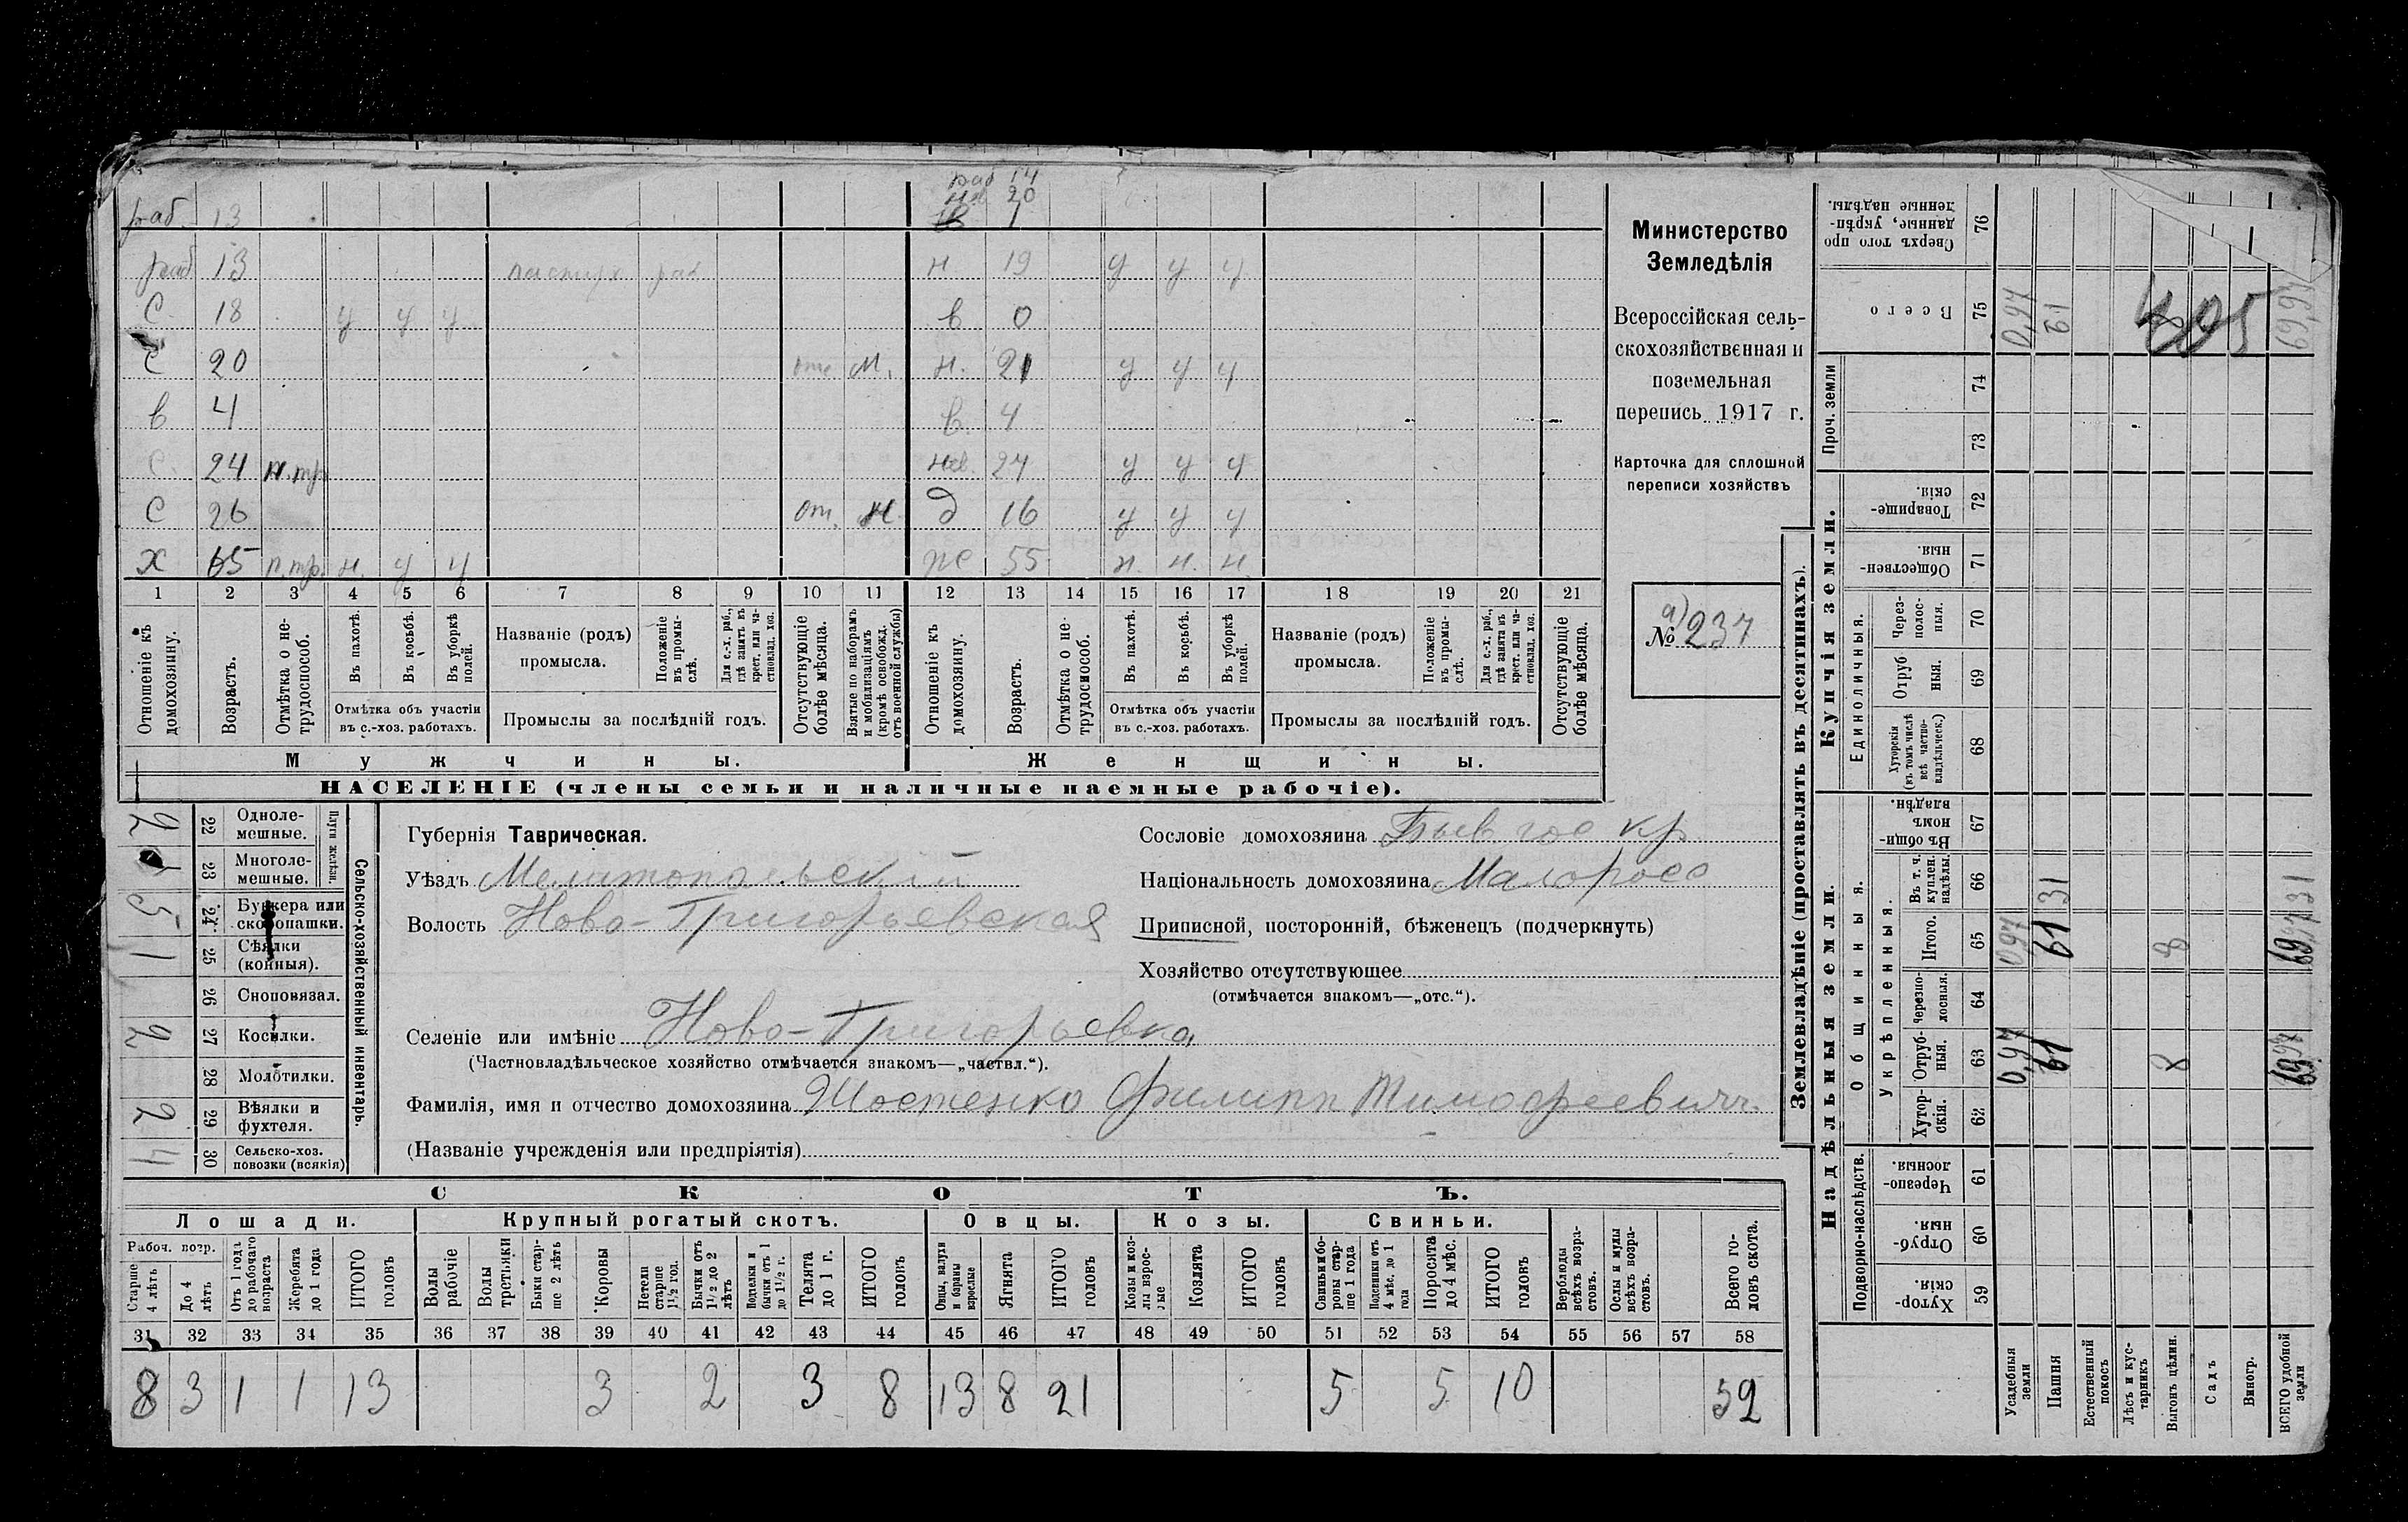 раб 14
н. 20
раб. 13 в 1
раб 13 пастух раб н 19 у у у
С. 18 у у у в. 0
С 20 отс М. н. 21 у у у
в 4 в. 4
С. 24 н.тр. нев. 24 у у у
С 26 от. М. д 16 у у у
Х 65 п.тр. н. у у же 55 н. н. н.
1 2 3 4 5 6 7 8 9 10 11 12 13 14 15 16 17 18 19 20 21
Отношеніе къ домохозяину.
Возрастъ.
Отмѣтка о не-трудоспособ.
Въ пахотѣ.
Въ косьбѣ.
Въ уборкѣ полей.
Отмѣтка объ участіи
въ с.-хоз. работахъ.
Названіе (родъ)
промысла.
Положеніе въ промы-слѣ.
Для с.-х. раб., гдѣ занятъ въ крест. или ча-стновлад. хоз.
Промыслы за послѣдній годъ.
Отсутствующіе болѣе мѣсяца.
Взятые по наборамъ и мобилизаціямъ (кромѣ освобожд. отъ военной службы)
Отношеніе къ домохозяину.
Возрастъ.
Отмѣтка о не-трудоспособ.
Въ пахотѣ.
Въ косьбѣ.
Въ уборкѣ полей.
Отмѣтка объ участіи
въ с.-хоз. работахъ.
Названіе (родъ)
промысла.
Положеніе въ промы-слѣ.
Для с.-х. раб., гдѣ занята въ крест. или ча-стновлад. хоз.
Промыслы за послѣдній годъ.
Отсутствующіе болѣе мѣсяца.
Мужчины. Женщины.
НАСЕЛЕНІЕ (члены семьи и наличные наемные рабочіе).
Министерство
Земледѣлія
Всероссійская сель-
скохозяйственная и
поземельная
перепись 1917 г.
Карточка для сплошной
переписи хозяйствъ
а)
№ 237
Сельско-хозяйственный инвентарь.
Плуги желѣзн.
2 22 Одноле-мешные.
1 23 Многоле-мешные.
5 24 Буккера или скоропашки.
1 25 Сѣялки (конныя).
26 Сноповязал.
2 27 Косилки.
28 Молотилки.
2 29 Вѣялки и фухтеля.
4 30 Сельско-хоз. повозки (всякія)
Губернія Таврическая.
Уѣздъ Мелитопольскій
Волость Ново-Григорьевская
Сословіе домохозяина Бывш гос кр.
Національность домохозяина Малоросс
Приписной, посторонній, бѣженецъ (подчеркнуть)
Хозяйство отсутствующее
(отмѣчается знакомъ—„отс.“).
Селеніе или имѣніе Ново-Григорьевка
(Частновладѣльческое хозяйство отмѣчается знакомъ—„частвл.“).
Фамилія, имя и отчество домохозяина Шостенко Филипп Тимофеевич.
(Названіе учрежденія или предпріятія)
СКОТЪ.
Лошади. Крупный рогатый скотъ. Овцы. Козы. Свиньи.
Рабоч. возр.
Старше 4 лѣтъ
До 4 лѣтъ
Отъ 1 года до рабочаго возраста
Жеребята до 1 года
ИТОГО головъ
Волы рабочіе
Волы третьяки
Быки стар-ше 2 лѣтъ
Коровы
Нетели старше 1½ год.
Бычки отъ 1½ до 2 лѣтъ
Подтелки и бычки отъ 1 до 1½ г.
Телята до 1 г.
ИТОГО головъ
Овцы, валухи и бараны взрослые
Ягнята
ИТОГО головъ
Козы и коз-лы взрос-лые
Козлята
ИТОГО головъ
Свиньи и бо-ровы стар-ше 1 года
Подсвинки отъ 4 мѣс. до 1 года
Поросята до 4 мѣс.
ИТОГО головъ
Верблюды всѣхъ возра-стовъ.
Ослы и мулы всѣхъ возра-стовъ.
Всего го-ловъ скота.
31 32 33 34 35 36 37 38 39 40 41 42 43 44 45 46 47 48 49 50 51 52 53 54 55 56 57 58
8 3 1 1 13 3 2 3 8 13 8 21 5 5 10 52
Землевладѣніе (проставлять въ десятинахъ).
Надѣльныя земли. Купчія земли.
Проч. земли
Сверхъ того про данные, укрѣп-ленные надѣлы. 76
Всего 75 0,97 61 69,97
405
74
73
Товарище-скія. 72
Обществен-ныя. 71
Единоличныя.
Через-полос-ныя. 70
Отруб ныя. 69
Хуторскія (въ томъ числѣ всѣ частно-владѣльческ.) 68
Общинныя.
Въ общи номъ владѣн. 67
Укрѣпленныя.
Въ т. ч. куплен. надѣлы. 66 31 31
Итого. 65 0,97 61 8 69,97
Черезпо-лосныя. 64
Отруб-ныя. 63 0,97 61 8 69,97
Хутор-скія. 62
Подворно-наслѣдств.
Черезпо-лосныя. 61
Отруб-ныя. 60
Хутор-скія. 59
Усадебныя земли
Пашня
Естественный покосъ
Лѣсъ и кус-тарникъ
Выгонъ цѣлин.
Садъ
Виногр.
ВСЕГО удобной земли